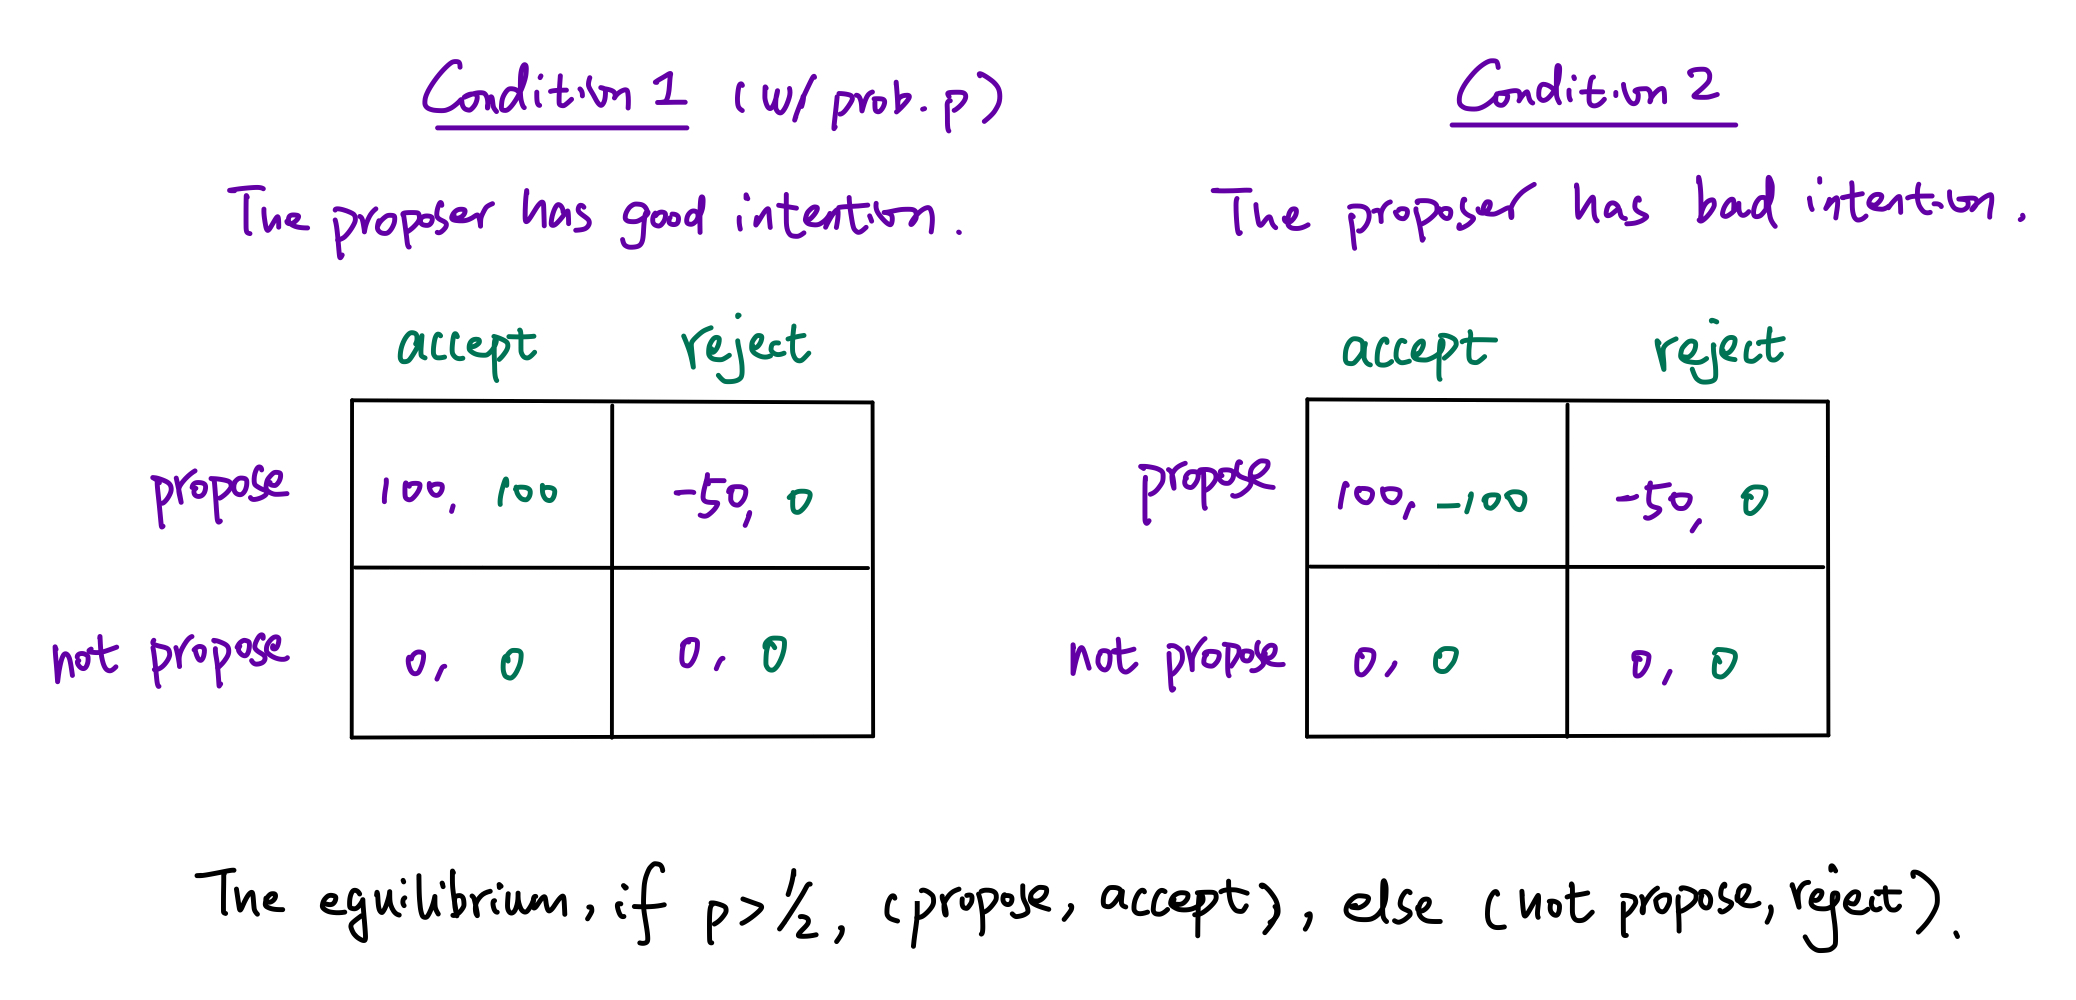 Condition 1 (w/ prob. p)
The proposer has good intention.
accept reject
propose 100, 100 -50, 0
not propose 0, 0 0, 0
Condition 2
The proposer has bad intention.
accept reject
propose 100, -100 -50, 0
not propose 0, 0 0, 0
The equilibrium, if p > 1/2, (propose, accept), else (not propose, reject).